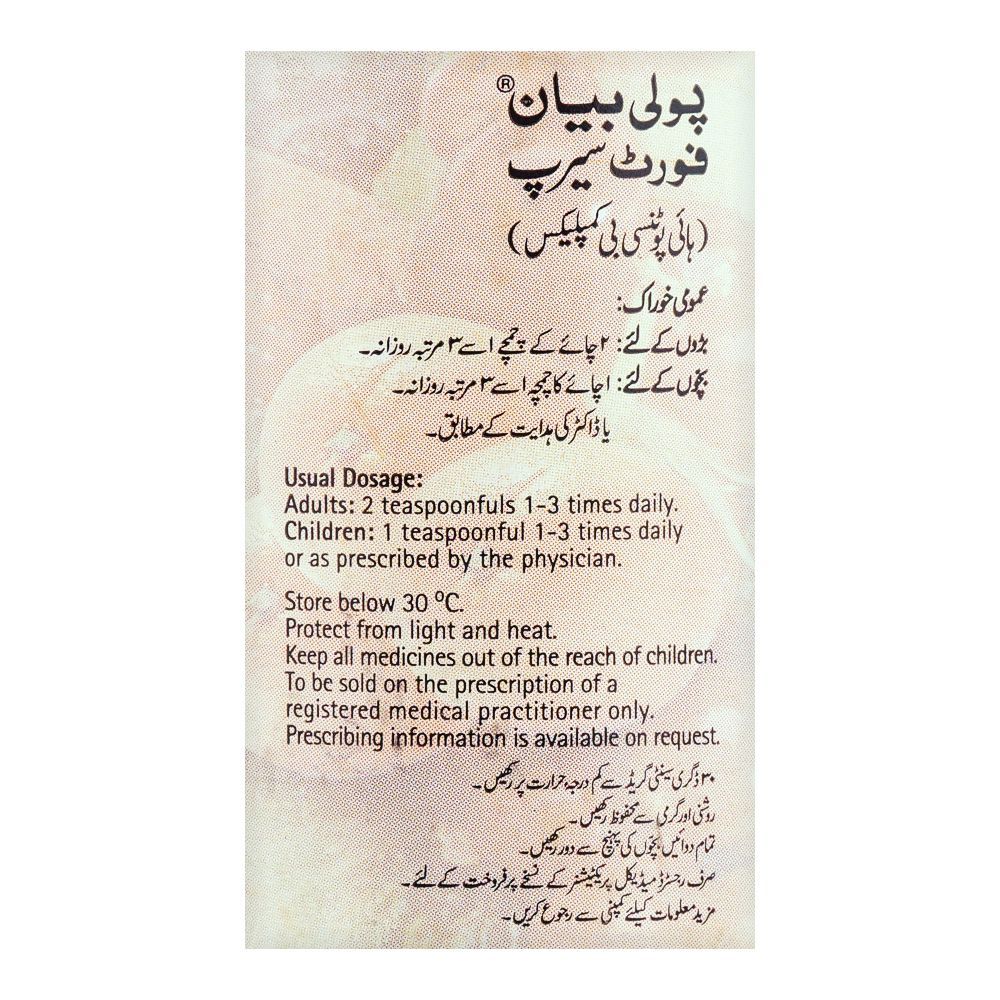 پولی بیان®
فورٹ سیرپ
(ہائی پوٹنسی بی کمپلیکس)
عمومی خوراک:
بڑوں کے لئے: ۲ چائے کے چمچے ۱ سے ۳ مرتبہ روزانہ۔
بچّوں کے لئے: ۱ چائے کا چمچہ ۱ سے ۳ مرتبہ روزانہ۔
یا ڈاکٹر کی ہدایت کے مطابق۔
Usual Dosage:
Adults: 2 teaspoonfuls 1-3 times daily.
Children: 1 teaspoonful 1-3 times daily
or as prescribed by the physician.
Store below 30 ºC.
Protect from light and heat.
Keep all medicines out of the reach of children.
To be sold on the prescription of a
registered medical practitioner only.
Prescribing information is available on request.
۳۰ ڈگری سینٹی گریڈ سے کم درجہ حرارت پر رکھیں۔
روشنی اور گرمی سے محفوظ رکھیں۔
تمام دوائیں بچّوں کی پہنچ سے دور رکھیں۔
صرف رجسٹرڈ میڈیکل پریکٹیشنر کے نسخے پر فروخت کے لئے۔
مزید معلومات کیلئے کمپنی سے رجوع کریں۔